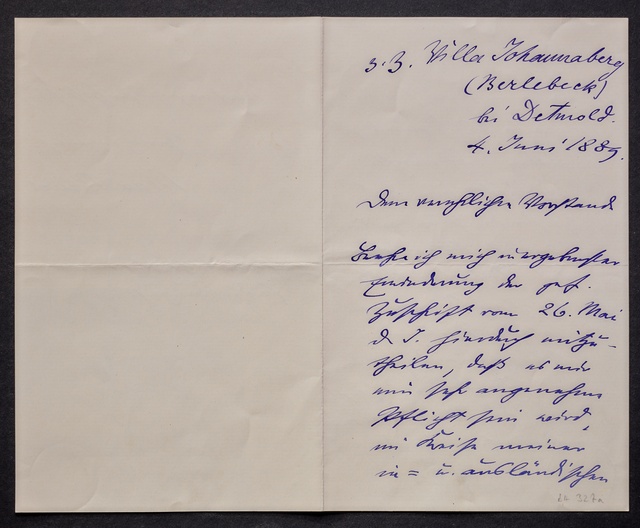 z. Z. Villa Johannaberg
(Berlebeck)
bei Detmold.
4. Juni 1889.
Dem verehrlichen Vorstande
beehre ich mich in ergebenster
Erwiderung der gef.
Zuschrift vom 26. Mai
d. J. hierdurch mitzu-
theilen, daß es mir
eine sehr angenehme
Pflicht sein wird,
im Kreise meiner
in= u. ausländischen